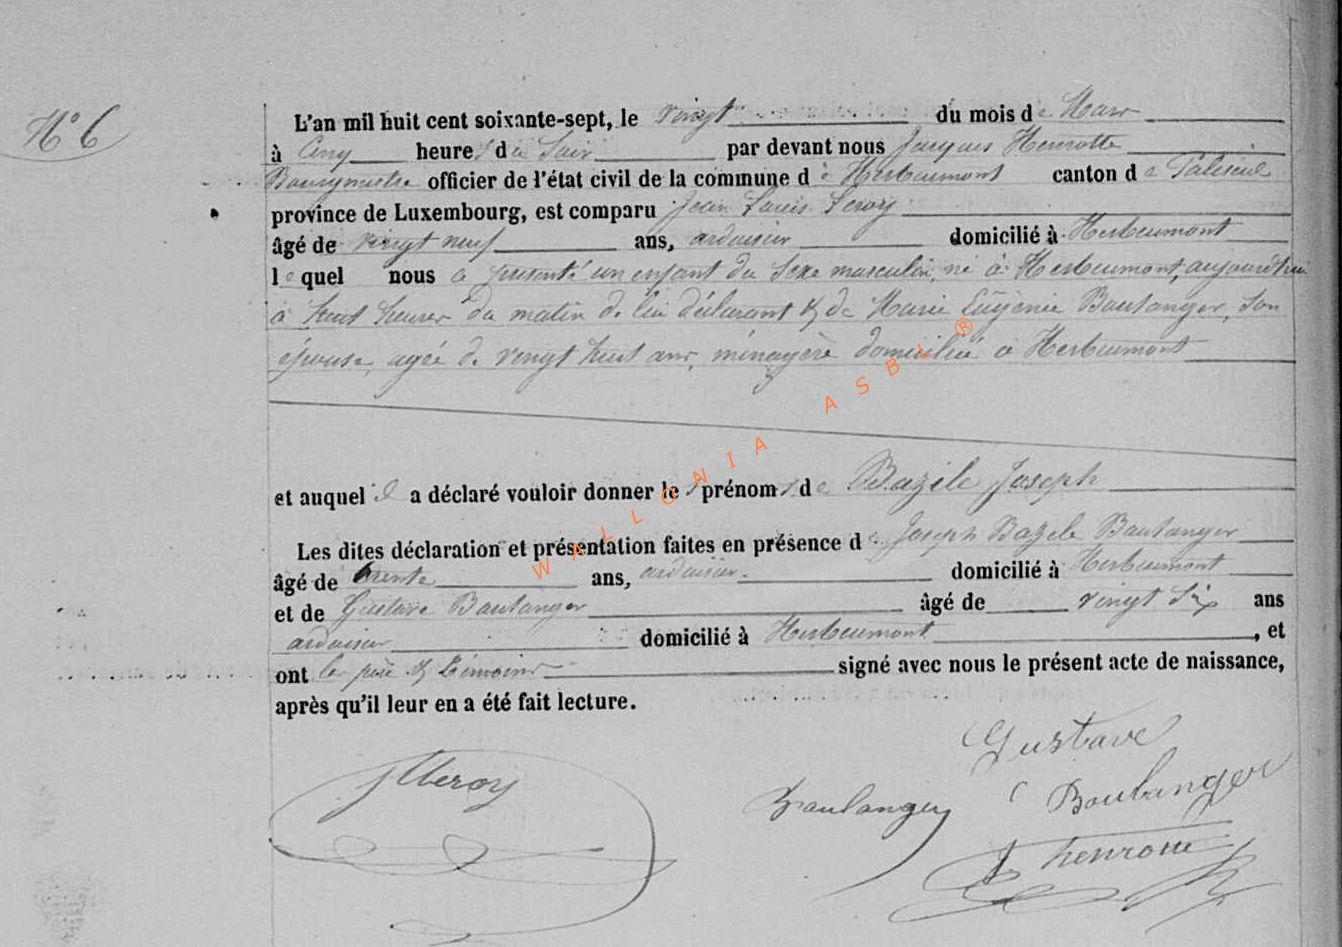 N° 6
L'an mil huit cent soixante-sept, le vingt du mois de Mars
à cinq heures du soir par devant nous Jacques Henrotte
Bourgmestre officier de l'état civil de la commune de Herbeumont canton de Paliseul
province de Luxembourg, est comparu Jean Louis Leroy
âgé de vingt neuf ans, ardoisier domicilié à Herbeumont
lequel nous a présenté un enfant du sexe masculin, né à Herbeumont, aujourd'hui
à huit heures du matin de lui déclarant & de Marie Eugénie Boulanger, son
épouse, agée de vingt huit ans, ménagère domiciliée à Herbeumont
et auquel il a déclaré vouloir donner les prénoms de Bazile Joseph
Les dites déclaration et présentation faites en présence de Joseph Bazile Boulanger
âgé de trente ans, ardoisier domicilié à Herbeumont
et de Gustave Boulanger âgé de vingt six ans
ardoisier domicilié à Herbeumont, et
ont les père & témoins signé avec nous le présent acte de naissance,
après qu'il leur en a été fait lecture.
Gustave
JLleroy Boulanger Boulanger
J henrotte
WALLONIA ASBL ®